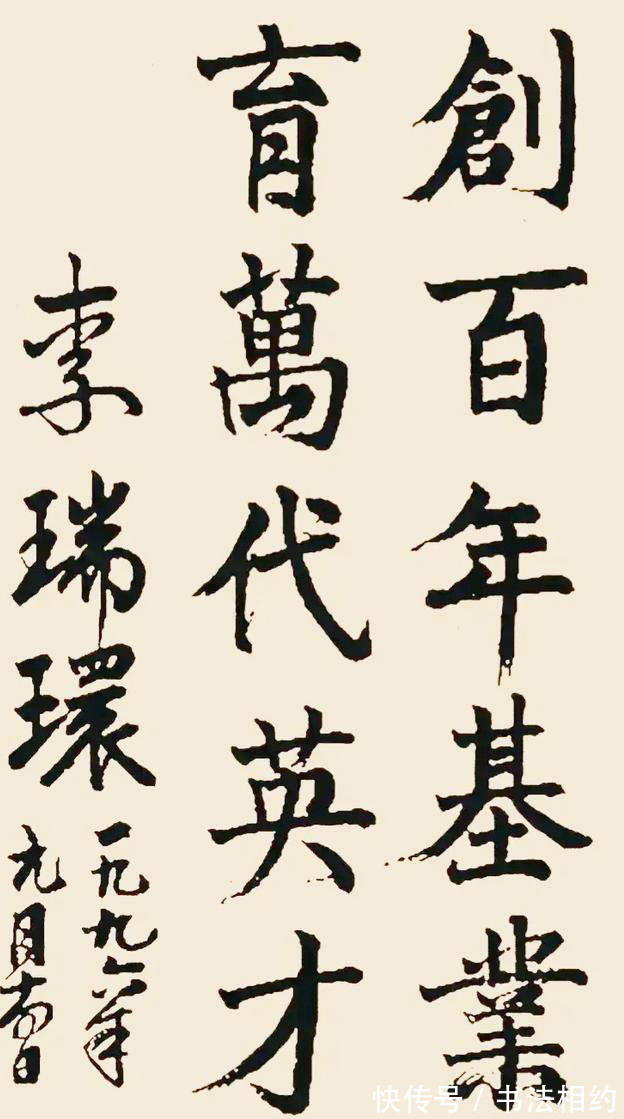 創百年基業
育萬代英才
李瑞環
一九九六年
九月
快传号/书法相约